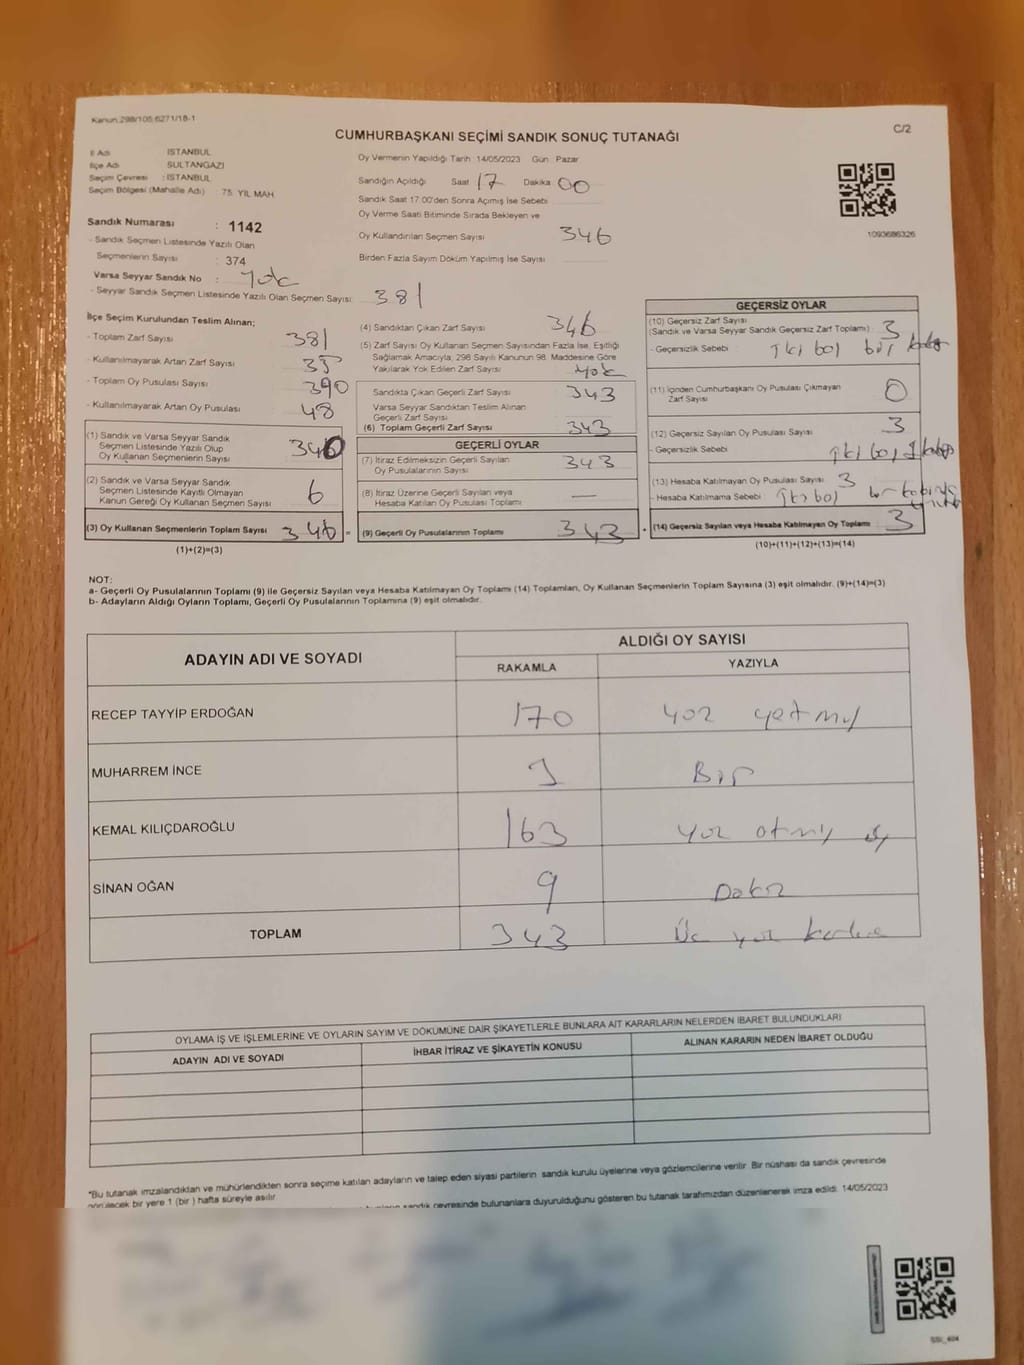 Kanun 298/105 6271/18-1
C/2
CUMHURBAŞKANI SEÇİMİ SANDIK SONUÇ TUTANAĞI
İl Adı İSTANBUL
İlçe Adı SULTANGAZİ
Seçim Çevresi : İSTANBUL
Seçim Bölgesi (Mahalle Adı) : 75. YIL MAH
Sandık Numarası : 1142
- Sandık Seçmen Listesinde Yazılı Olan
Seçmenlerin Sayısı : 374
Varsa Seyyar Sandık No : Yok
- Seyyar Sandık Seçmen Listesinde Yazılı Olan Seçmen Sayısı: 381
Oy Vermenin Yapıldığı Tarih :14/05/2023 Gün: Pazar
Sandığın Açıldığı Saat 17 Dakika 00
Sandık Saat 17:00'den Sonra Açılmış İse Sebebi
Oy Verme Saati Bitiminde Sırada Bekleyen ve
Oy Kullandırılan Seçmen Sayısı 346
Birden Fazla Sayım Döküm Yapılmış İse Sayısı
1093686326
İlçe Seçim Kurulundan Teslim Alınan;
- Toplam Zarf Sayısı 381
- Kullanılmayarak Artan Zarf Sayısı 35
- Toplam Oy Pusulası Sayısı 390
- Kullanılmayarak Artan Oy Pusulası 48
(1) Sandık ve Varsa Seyyar Sandık
Seçmen Listesinde Yazılı Olup
Oy Kullanan Seçmenlerin Sayısı 340
(2) Sandık ve Varsa Seyyar Sandık
Seçmen Listesinde Kayıtlı Olmayan
Kanun Gereği Oy Kullanan Seçmen Sayısı 6
(3) Oy Kullanan Seçmenlerin Toplam Sayısı 346 =
(1)+(2)=(3)
(4) Sandıktan Çıkan Zarf Sayısı 346
(5) Zarf Sayısı Oy Kullanan Seçmen Sayısından Fazla İse, Eşitliği
Sağlamak Amacıyla, 298 Sayılı Kanunun 98. Maddesine Göre
Yakılarak Yok Edilen Zarf Sayısı yok
Sandıkta Çıkan Geçerli Zarf Sayısı 343
Varsa Seyyar Sandıktan Teslim Alınan
Geçerli Zarf Sayısı
(6) Toplam Geçerli Zarf Sayısı 343
GEÇERLİ OYLAR
(7) İtiraz Edilmeksizin Geçerli Sayılan
Oy Pusulalarının Sayısı 343
(8) İtiraz Üzerine Geçerli Sayılan veya
Hesaba Katılan Oy Pusulası Toplamı —
(9) Geçerli Oy Pusulalarının Toplamı 343 +
GEÇERSİZ OYLAR
(10) Geçersiz Zarf Sayısı
(Sandık ve Varsa Seyyar Sandık Geçersiz Zarf Toplamı) 3
- Geçersizlik Sebebi : iki boş bir
(11) İçinden Cumhurbaşkanı Oy Pusulası Çıkmayan
Zarf Sayısı 0
(12) Geçersiz Sayılan Oy Pusulası Sayısı 3
- Geçersizlik Sebebi iki boş 1
(13) Hesaba Katılmayan Oy Pusulası Sayısı 3
- Hesaba Katılmama Sebebi : iki boş bir
(14) Geçersiz Sayılan veya Hesaba Katılmayan Oy Toplamı 3
(10)+(11)+(12)+(13)=(14)
NOT:
a- Geçerli Oy Pusulalarının Toplamı (9) ile Geçersiz Sayılan veya Hesaba Katılmayan Oy Toplamı (14) Toplamları, Oy Kullanan Seçmenlerin Toplam Sayısına (3) eşit olmalıdır. (9)+(14)=(3)
b- Adayların Aldığı Oyların Toplamı, Geçerli Oy Pusulalarının Toplamına (9) eşit olmalıdır.
ADAYIN ADI VE SOYADI
ALDIĞI OY SAYISI
RAKAMLA YAZIYLA
RECEP TAYYİP ERDOĞAN 170 yüz yetmiş
MUHARREM İNCE 1 Bir
KEMAL KILIÇDAROĞLU 163 yüz atmış üç
SİNAN OĞAN 9 Dokuz
TOPLAM 343 Üç yüz
OYLAMA İŞ VE İŞLEMLERİNE VE OYLARIN SAYIM VE DÖKÜMÜNE DAİR ŞİKAYETLERLE BUNLARA AİT KARARLARIN NELERDEN İBARET BULUNDUKLARI
ADAYIN ADI VE SOYADI İHBAR İTİRAZ VE ŞİKAYETİN KONUSU ALINAN KARARIN NEDEN İBARET OLDUĞU
*Bu tutanak imzalandıktan ve mühürlendikten sonra seçime katılan adayların ve talep eden siyasi partilerin sandık kurulu üyelerine veya gözlemcilerine verilir. Bir nüshası da sandık çevresinde
görülecek bir yere 1 (bir) hafta süreyle asılır.
sandık çevresinde bulunanlara duyurulduğunu gösteren bu tutanak tarafımızdan düzenlenerek imza edildi. 14/05/2023